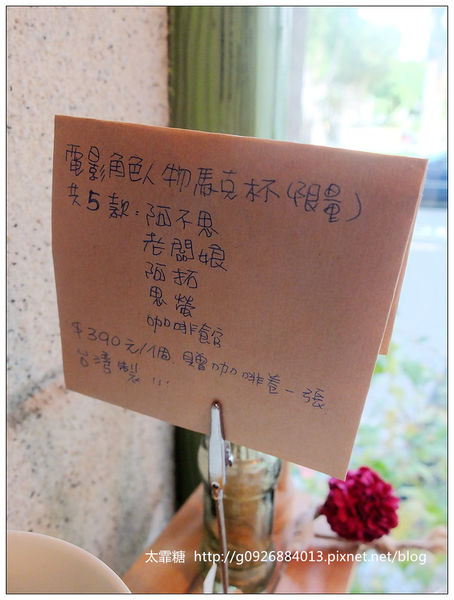 電影角色人物馬克杯(限量)
共5款:阿不思
老闆娘
阿拓
思螢
咖啡館
$390元/1個.贈咖啡卷一張
台灣製...
太霏糖 http://g0926884013.pixnet.net/blog